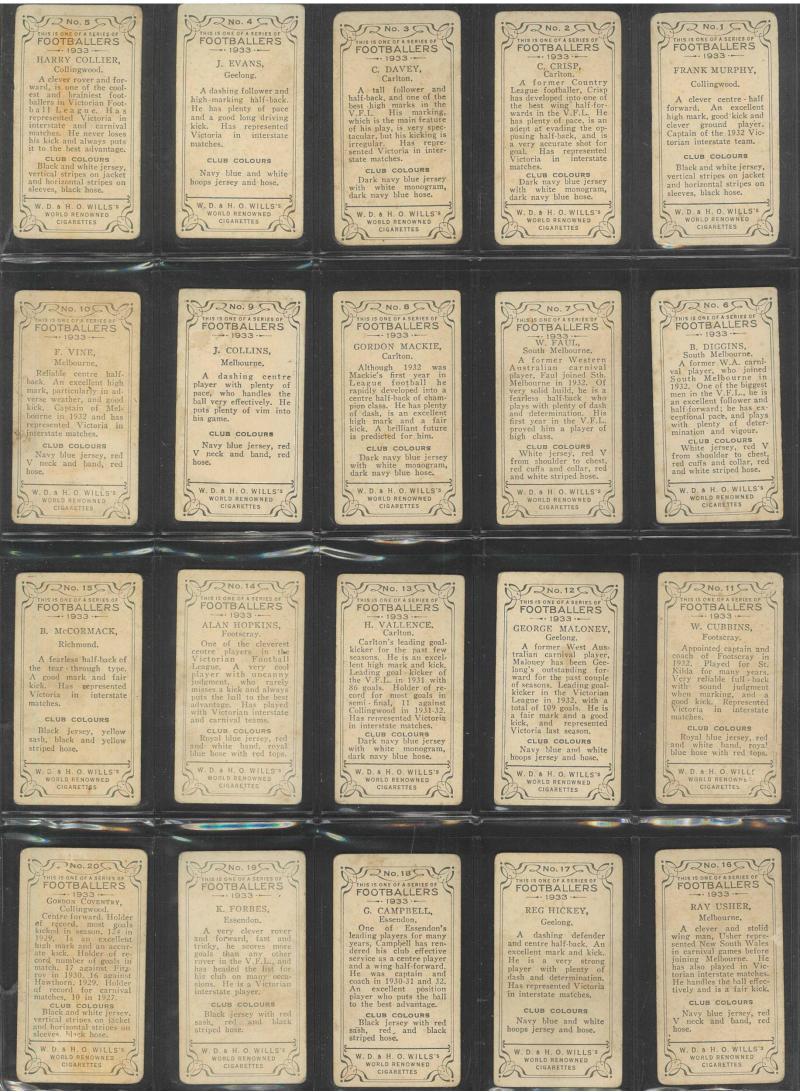 No. 5
THIS IS ONE OF A SERIES OF
FOOTBALLERS
1933
HARRY COLLIER,
Collingwood.
A clever rover and for-
ward, is one of the cool-
est and brainiest foot-
ballers in Victorian Foot-
ball League. Has
represented Victoria in
interstate and carnival
matches. He never loses
his kick and always puts
it to the best advantage.
CLUB COLOURS
Black and white jersey,
vertical stripes on jacket
and horizontal stripes on
sleeves, black hose.
W. D. & H. O. WILLS'S
WORLD RENOWNED
CIGARETTES
No. 4
THIS IS ONE OF A SERIES OF
FOOTBALLERS
1933
J. EVANS,
Geelong.
A dashing follower and
high-marking half-back.
He has plenty of pace
and a good long driving
kick. Has represented
Victoria in interstate
matches.
CLUB COLOURS
Navy blue and white
hoops jersey and hose.
W. D. & H. O. WILLS'S
WORLD RENOWNED
CIGARETTES
No. 3
THIS IS ONE OF A SERIES OF
FOOTBALLERS
1933
C. DAVEY,
Carlton.
A tall follower and
half-back, and one of the
best high marks in the
V.F.L. His marking,
which is the main feature
of his play, is very spec-
tacular, but his kicking is
irregular. Has repre-
sented Victoria in inter-
state matches.
CLUB COLOURS
Dark navy blue jersey
with white monogram,
dark navy blue hose.
W. D. & H. O. WILLS'S
WORLD RENOWNED
CIGARETTES
No. 2
THIS IS ONE OF A SERIES OF
FOOTBALLERS
1933
C. CRISP,
Carlton.
A former Country
League footballer, Crisp
has developed into one of
the best wing half-for-
wards in the V.F.L. He
has plenty of pace, is an
adept at evading the op-
posing half-back, and is
a very accurate shot for
goal. Has represented
Victoria in interstate
matches.
CLUB COLOURS
Dark navy blue jersey
with white monogram,
dark navy blue hose.
W. D. & H. O. WILLS'S
WORLD RENOWNED
CIGARETTES
No. 1
THIS IS ONE OF A SERIES OF
FOOTBALLERS
1933
FRANK MURPHY,
Collingwood.
A clever centre-half
forward. An excellent
high mark, good kick and
clever ground player.
Captain of the 1932 Vic-
torian interstate team.
CLUB COLOURS
Black and white jersey,
vertical stripes on jacket
and horizontal stripes on
sleeves, black hose.
W. D. & H. O. WILLS'S
WORLD RENOWNED
CIGARETTES
No. 10
THIS IS ONE OF A SERIES OF
FOOTBALLERS
1933
F. VINE,
Melbourne.
Reliable centre half-
back. An excellent high
mark, particularly in ad-
verse weather, and good
kick. Captain of Mel-
bourne in 1932 and has
represented Victoria in
interstate matches.
CLUB COLOURS
Navy blue jersey, red
V neck and band, red
hose.
W. D. & H. O. WILLS'S
WORLD RENOWNED
CIGARETTES
No. 9
THIS IS ONE OF A SERIES OF
FOOTBALLERS
1933
J. COLLINS,
Melbourne.
A dashing centre
player with plenty of
pace, who handles the
ball very effectively. He
puts plenty of vim into
his game.
CLUB COLOURS
Navy blue jersey, red
V neck and band, red
hose.
W. D. & H. O. WILLS'S
WORLD RENOWNED
CIGARETTES
No. 8
THIS IS ONE OF A SERIES OF
FOOTBALLERS
1933
GORDON MACKIE,
Carlton.
Although 1932 was
Mackie's first year in
League football he
rapidly developed into a
centre half-back of cham-
pion class. He has plenty
of dash, is an excellent
high mark and a fair
kick. A brilliant future
is predicted for him.
CLUB COLOURS
Dark navy blue jersey
with white monogram,
dark navy blue hose.
W. D. & H. O. WILLS'S
WORLD RENOWNED
CIGARETTES
No. 7
THIS IS ONE OF A SERIES OF
FOOTBALLERS
1933
W. FAUL,
South Melbourne.
A former Western
Australian carnival
player, Faul joined Sth.
Melbourne in 1932. Of
very solid build, he is a
fearless half-back who
plays with plenty of dash
and determination. His
first year in the V.F.L.
proved him a player of
high class.
CLUB COLOURS
White jersey, red V
from shoulder to chest,
red cuffs and collar, red
and white striped hose.
W. D. & H. O. WILLS'S
WORLD RENOWNED
CIGARETTES
No. 6
THIS IS ONE OF A SERIES OF
FOOTBALLERS
1933
B. DIGGINS,
South Melbourne.
A former W.A. carni-
val player, who joined
South Melbourne in
1932. One of the biggest
men in the V.F.L., he is
an excellent follower and
half-forward; he has ex-
ceptional pace, and plays
with plenty of deter-
mination and vigour.
CLUB COLOURS
White jersey, red V
from shoulder to chest,
red cuffs and collar, red
and white striped hose.
W. D. & H. O. WILLS'S
WORLD RENOWNED
CIGARETTES
No. 15
THIS IS ONE OF A SERIES OF
FOOTBALLERS
1933
B. McCORMACK,
Richmond.
A fearless half-back of
the tear-through type.
A good mark and fair
kick. Has represented
Victoria in interstate
matches.
CLUB COLOURS
Black jersey, yellow
sash, black and yellow
striped hose.
W. D. & H. O. WILLS'S
WORLD RENOWNED
CIGARETTES
No. 14
THIS IS ONE OF A SERIES OF
FOOTBALLERS
1933
ALAN HOPKINS,
Footscray.
One of the cleverest
centre players in the
Victorian Football
League. A very cool
player with uncanny
judgment, who rarely
misses a kick and always
puts the ball to the best
advantage. Has played
with Victorian interstate
and carnival teams.
CLUB COLOURS
Royal blue jersey, red
and white band, royal
blue hose with red tops.
W. D. & H. O. WILLS'S
WORLD RENOWNED
CIGARETTES
No. 13
THIS IS ONE OF A SERIES OF
FOOTBALLERS
1933
H. VALLENCE,
Carlton.
Carlton's leading goal-
kicker for the past few
seasons. He is an excel-
lent high mark and kick.
Leading goal-kicker of
the V.F.L. in 1931 with
86 goals. Holder of re-
cord for most goals in
semi-final, 11 against
Collingwood in 1931-32.
Has represented Victoria
in interstate matches.
CLUB COLOURS
Dark navy blue jersey
with white monogram,
dark navy blue hose.
W. D. & H. O. WILLS'S
WORLD RENOWNED
CIGARETTES
No. 12
THIS IS ONE OF A SERIES OF
FOOTBALLERS
1933
GEORGE MALONEY,
Geelong.
A former West Aus-
tralian carnival player,
Maloney has been Gee-
long's outstanding for-
ward for the past couple
of seasons. Leading goal-
kicker in the Victorian
League in 1932, with a
total of 109 goals. He is
a fair mark and a good
kick, and represented
Victoria last season.
CLUB COLOURS
Navy blue and white
hoops jersey and hose.
W. D. & H. O. WILLS'S
WORLD RENOWNED
CIGARETTES
No. 11
THIS IS ONE OF A SERIES OF
FOOTBALLERS
1933
W. CUBBINS,
Footscray.
Appointed captain and
coach of Footscray in
1932. Played for St.
Kilda for many years.
Very reliable full-back
with sound judgment
when marking, and a
good kick. Represented
Victoria in interstate
matches.
CLUB COLOURS
Royal blue jersey, red
and white band, royal
blue hose with red tops.
W. D. & H. O. WILLS
WORLD RENOWNE
CIGARETTES
No. 20
THIS IS ONE OF A SERIES OF
FOOTBALLERS
1933
GORDON COVENTRY,
Collingwood.
Centre forward. Holder
of record, most goals
kicked in season, 124 in
1929. Is an excellent
high mark and an accur-
ate kick. Holder of re-
cord number of goals in
match, 17 against Fitz-
roy in 1930, 16 against
Hawthorn, 1929. Holder
of record for carnival
matches, 10 in 1927.
CLUB COLOURS
Black and white jersey,
vertical stripes on jacket
and horizontal stripes on
sleeves, black hose.
W. D. & H. O. WILLS'S
WORLD RENOWNED
CIGARETTES
No. 19
THIS IS ONE OF A SERIES OF
FOOTBALLERS
1933
K. FORBES,
Essendon.
A very clever rover
and forward, fast and
tricky, he scores more
goals than any other
rover in the V.F.L., and
has headed the list for
his club on many occa-
sions. He is a Victorian
interstate player.
CLUB COLOURS
Black jersey with red
sash, red and black
striped hose.
W. D. & H. O. WILLS'S
WORLD RENOWNED
CIGARETTES
No. 18
THIS IS ONE OF A SERIES OF
FOOTBALLERS
1933
G. CAMPBELL,
Essendon.
One of Essendon's
leading players for many
years, Campbell has ren-
dered his club effective
service as a centre player
and a wing half-forward.
He was captain and
coach in 1930-31 and 32.
An excellent position
player who puts the ball
to the best advantage.
CLUB COLOURS
Black jersey with red
sash, red and black
striped hose.
W. D. & H. O. WILLS'S
WORLD RENOWNED
CIGARETTES
No. 17
THIS IS ONE OF A SERIES OF
FOOTBALLERS
1933
REG HICKEY,
Geelong.
A dashing defender
and centre half-back. An
excellent mark and kick.
He is a very strong
player with plenty of
dash and determination.
Has represented Victoria
in interstate matches.
CLUB COLOURS
Navy blue and white
hoops jersey and hose.
W. D. & H. O. WILLS'S
WORLD RENOWNED
CIGARETTES
No. 16
THIS IS ONE OF A SERIES OF
FOOTBALLERS
1933
RAY USHER,
Melbourne.
A clever and stolid
wing man, Usher repre-
sented New South Wales
in carnival games before
joining Melbourne. He
has also played in Vic-
torian interstate matches.
He handles the ball effec-
tively and is a fair kick.
CLUB COLOURS
Navy blue jersey, red
V neck and band, red
hose.
W. D. & H. O. WILLS'S
WORLD RENOWNED
CIGARETTES